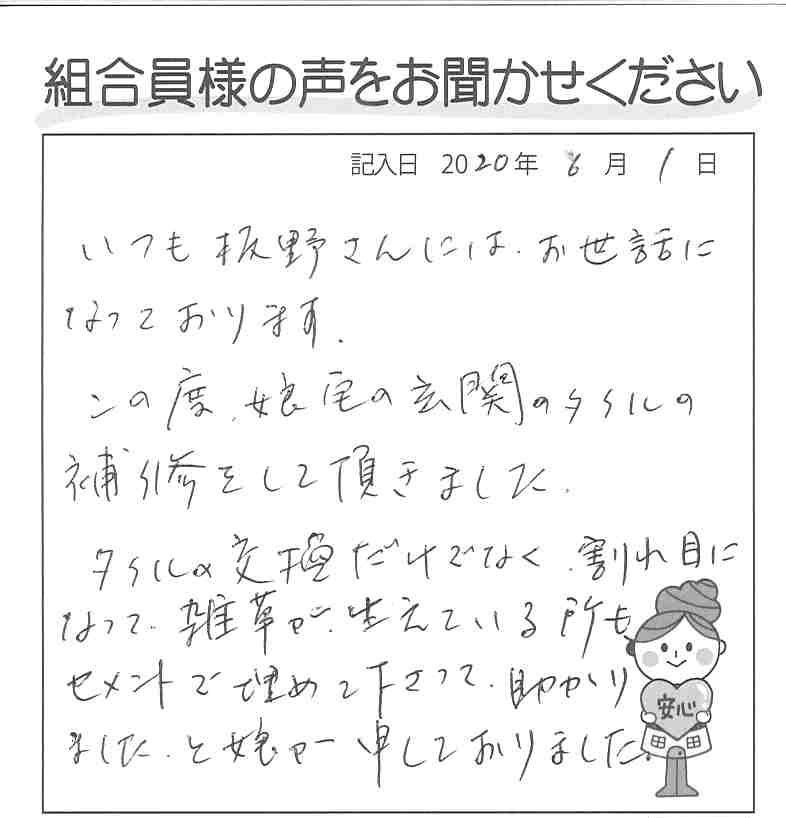 組合員様の声をお聞かせください
記入日 2020年 6月 1日
いつも板野さんには、お世話に
なっております。
この度、娘宅の玄関のタイルの
補修をして頂きました。
タイルの交換だけでなく、割れ目に
なって、雑草が、生えている所も
セメントで埋めて下さって、助かり
ました、と娘が申しておりました。
安心